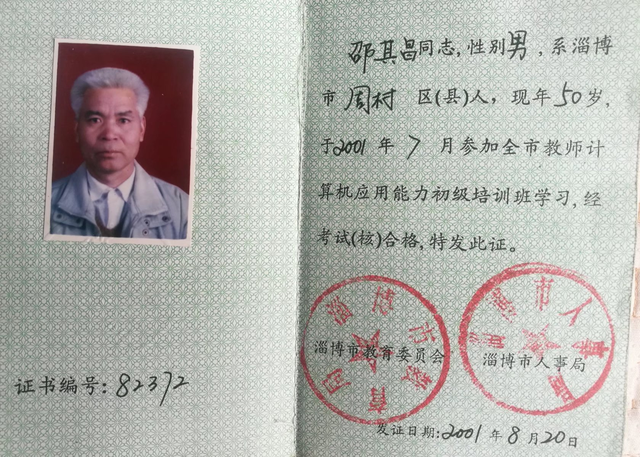 邵其昌同志,性别男,系淄博
市周村区(县)人,现年50岁,
于2001年7月参加全市教师计
算机应用能力初级培训班学习,经
考试(核)合格,特发此证。
淄博市教育委员会
淄博市人事局
证书编号:82372
发证日期:2001年8月20日